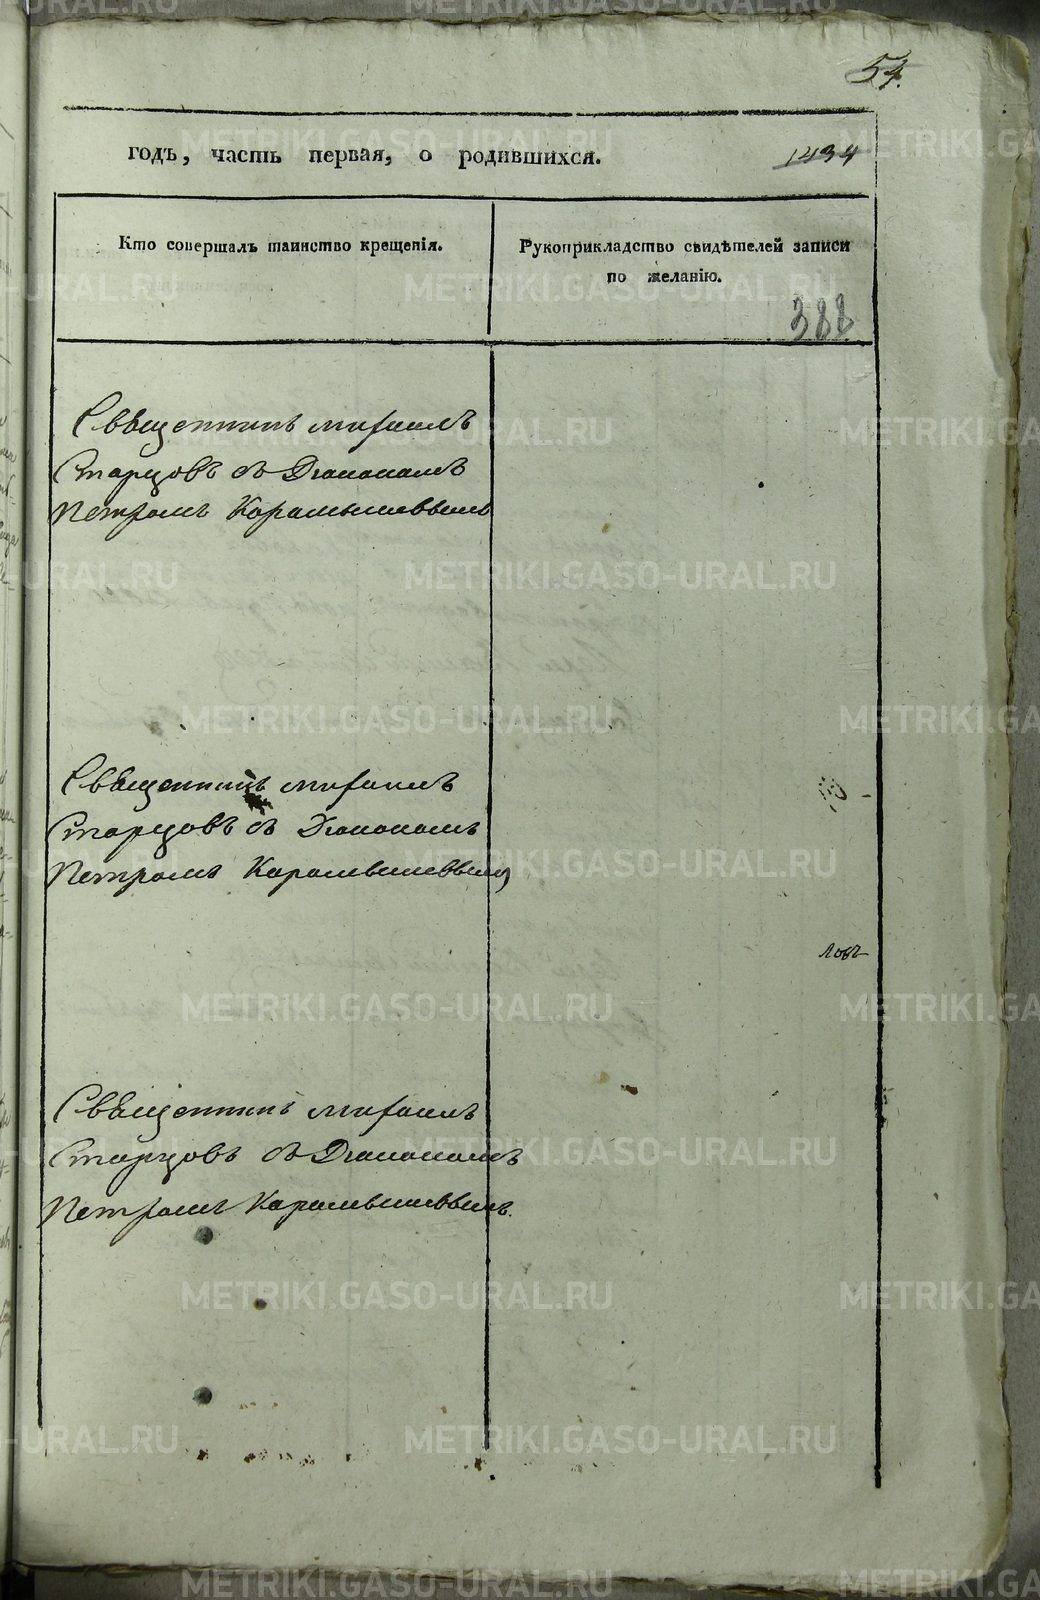 54.
годъ, часть первая, о родившихся.
1434
Кто совершалъ таинство крещенія.
Рукоприкладство свидѣтелей записи
по желанію.
388
Священникъ Михаилъ
Старцовъ съ Діакономъ
Петромъ Карамышевымъ
Священникъ Михаилъ
Старцовъ съ Діакономъ
Петромъ Карамышевымъ
Священникъ Михаилъ
Старцовъ съ Діакономъ
Петромъ Карамышевымъ.
METRIKI.GASO-URAL.RU